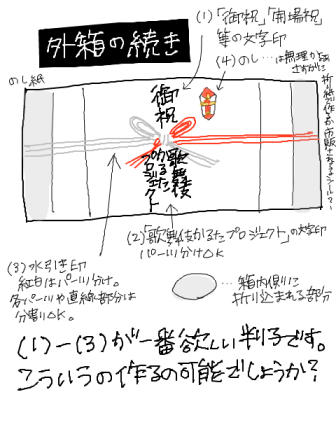 外箱の続き
(1)「御祝」「角場祝」
等の文字印
のし紙
(4)のし…は無理かな
さすがに
折紙で作るか市販であるシール?
御祝
歌舞伎
かるた
プロジェクト
(2)「歌舞伎かるたプロジェクト」の文字印
パーツ分けOK
(3)水引き印
紅白はパーツ分け。
各パーツや直線部分は
分割OK。
…箱内側に
折り込まれる部分
(1)-(3)が一番欲しい判子です。
こういうの作るの可能でしょうか?